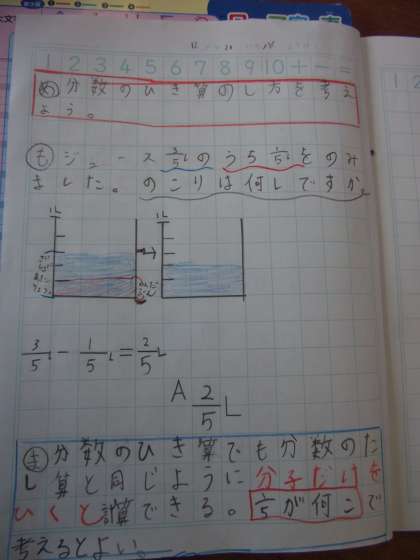 1 2 3 4 5 6 7 8 9 10 + - =
め 分数のひき算のし方を考え
よう。
も ジュース3/5Lのうち1/5Lをのみ
ました。のこりは何Lですか。
1L 1L
3/5L - 1/5L = 2/5L
A 2/5L
ま 分数のひき算でも分数のた
し算と同じように分子だけを
ひくと計算できる。1/5が何こで
考えるとよい。
1 2